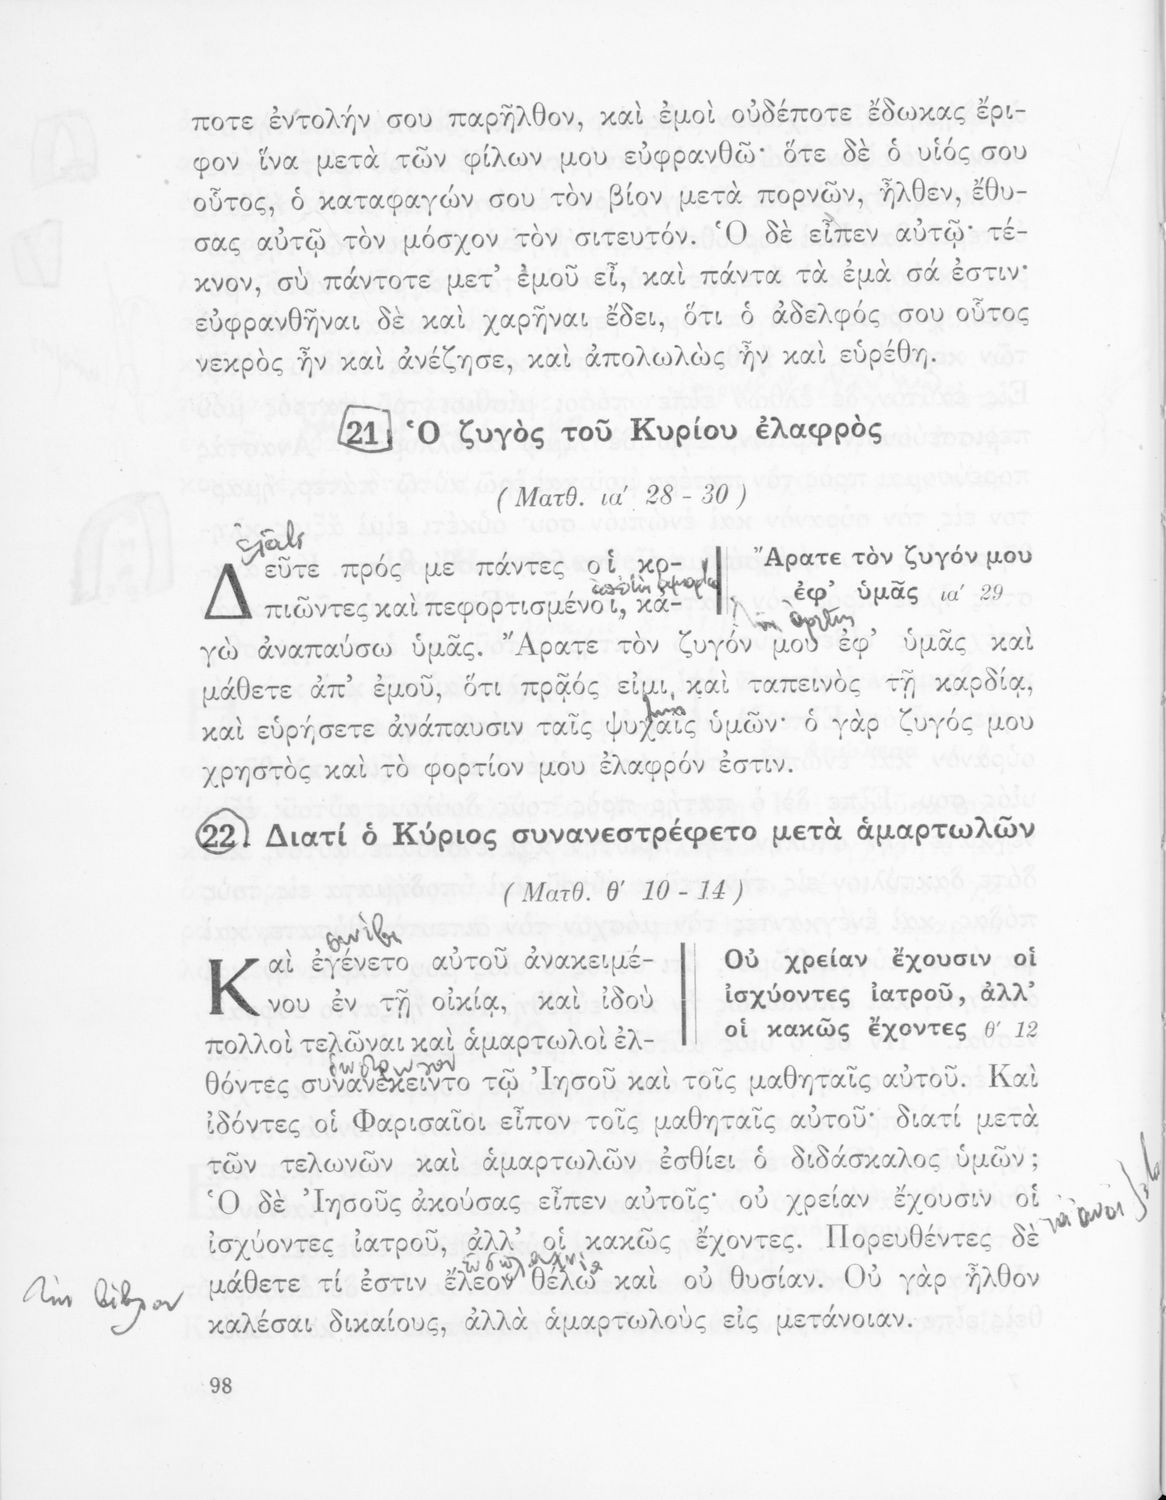 ποτε ἐντολήν σου παρῆλθον, καὶ ἐμοὶ οὐδέποτε ἔδωκας ἔρι-
φον ἵνα μετὰ τῶν φίλων μου εὐφρανθῶ· ὅτε δὲ ὁ υἱός σου
οὗτος, ὁ καταφαγών σου τὸν βίον μετὰ πορνῶν, ἦλθεν, ἔθυ-
σας αὐτῷ τὸν μόσχον τὸν σιτευτόν. Ὁ δὲ εἶπεν αὐτῷ· τέ-
κνον, σὺ πάντοτε μετ’ ἐμοῦ εἶ, καὶ πάντα τὰ ἐμὰ σά ἐστιν·
εὐφρανθῆναι δὲ καὶ χαρῆναι ἔδει, ὅτι ὁ ἀδελφός σου οὗτος
νεκρὸς ἦν καὶ ἀνέζησε, καὶ ἀπολωλὼς ἦν καὶ εὑρέθη.
21. Ὁ ζυγὸς τοῦ Κυρίου ἐλαφρὸς
(Ματθ. ια′ 28 - 30)
ἐλᾶτε
Δεῦτε πρός με πάντες οἱ κο-
πιῶντες καὶ πεφορτισμένοι, κἀ-
Ἄρατε τὸν ζυγόν μου
ἐφ’ ὑμᾶς ια′ 29
γὼ ἀναπαύσω ὑμᾶς. Ἄρατε τὸν ζυγόν μου ἐφ’ ὑμᾶς καὶ
μάθετε ἀπ’ ἐμοῦ, ὅτι πρᾷός εἰμι καὶ ταπεινὸς τῇ καρδίᾳ,
καὶ εὑρήσετε ἀνάπαυσιν ταῖς ψυχαῖς ὑμῶν· ὁ γὰρ ζυγός μου
χρηστὸς καὶ τὸ φορτίον μου ἐλαφρόν ἐστιν.
22. Διατί ὁ Κύριος συνανεστρέφετο μετὰ ἁμαρτωλῶν
(Ματθ. θ′ 10 - 14)
συνέβη
Καὶ ἐγένετο αὐτοῦ ἀνακειμέ-
νου ἐν τῇ οἰκίᾳ, καὶ ἰδοὺ
πολλοὶ τελῶναι καὶ ἁμαρτωλοὶ ἐλ-
Οὐ χρείαν ἔχουσιν οἱ
ἰσχύοντες ἰατροῦ, ἀλλ’
οἱ κακῶς ἔχοντες θ′ 12
θόντες συνανέκειντο τῷ Ἰησοῦ καὶ τοῖς μαθηταῖς αὐτοῦ. Καὶ
ἰδόντες οἱ Φαρισαῖοι εἶπον τοῖς μαθηταῖς αὐτοῦ· διατί μετὰ
τῶν τελωνῶν καὶ ἁμαρτωλῶν ἐσθίει ὁ διδάσκαλος ὑμῶν;
Ὁ δὲ Ἰησοῦς ἀκούσας εἶπεν αὐτοῖς· οὐ χρείαν ἔχουσιν οἱ
ἰσχύοντες ἰατροῦ, ἀλλ’ οἱ κακῶς ἔχοντες. Πορευθέντες δὲ
μάθετε τί ἐστιν ἔλεον θέλω καὶ οὐ θυσίαν. Οὐ γὰρ ἦλθον
καλέσαι δικαίους, ἀλλὰ ἁμαρτωλοὺς εἰς μετάνοιαν.
98